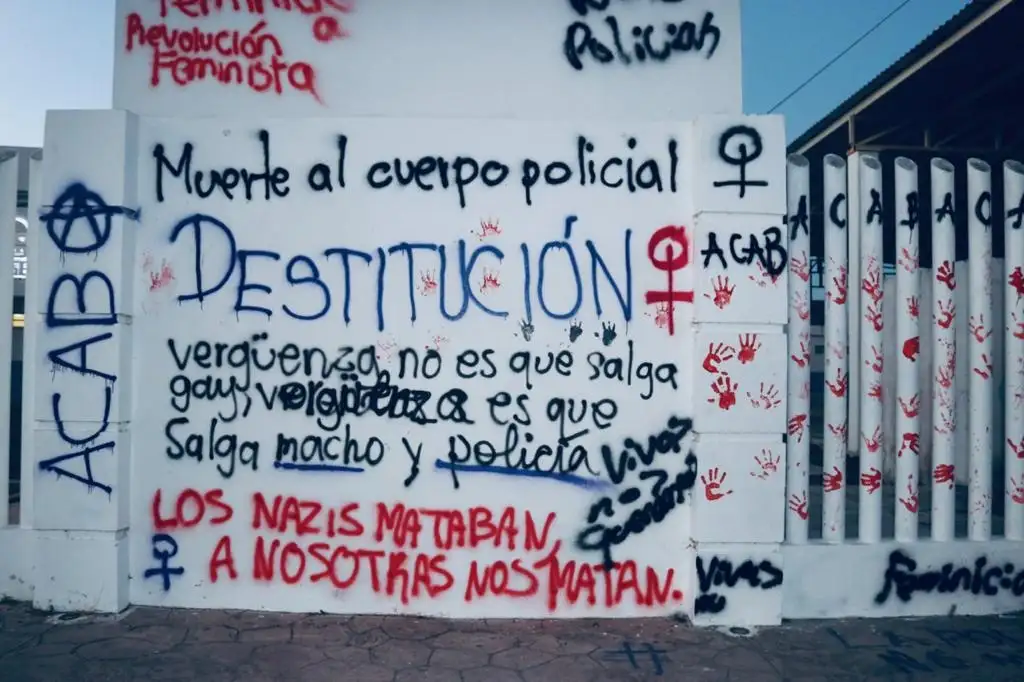 Revolución
Feminista
Policias
Muerte al cuerpo policial
DESTITUCIÓN
vergüenza, no es que salga
gay, vergüenza es que
salga macho y policía
LOS NAZIS MATABAN,
A NOSOTRAS NOS MATAN.
Vivas
nos
queremos
ACAB
ACAB
A C A B A C A
Vivas
Feminicid